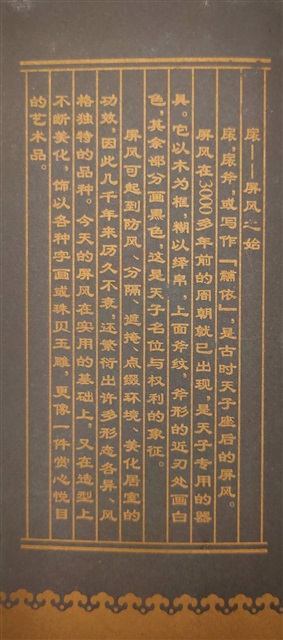 扆——屏风之始
扆,扆斧,或写作“黼依”,是古时天子座后的屏风。
屏风在3000多年前的周朝就已出现,是天子专用的器
具。它以木为框,糊以绛帛,上面斧纹,斧形的近刃处画白
色,其余部分画黑色,这是天子名位与权利的象征。
屏风可起到防风、分隔、遮掩、点缀环境、美化居室的
功效,因此几千年来历久不衰,还繁衍出许多形态各异、风
格独特的品种。今天的屏风在实用的基础上,又在造型上
不断美化,饰以各种字画或珠贝玉雕,更像一件赏心悦目
的艺术品。